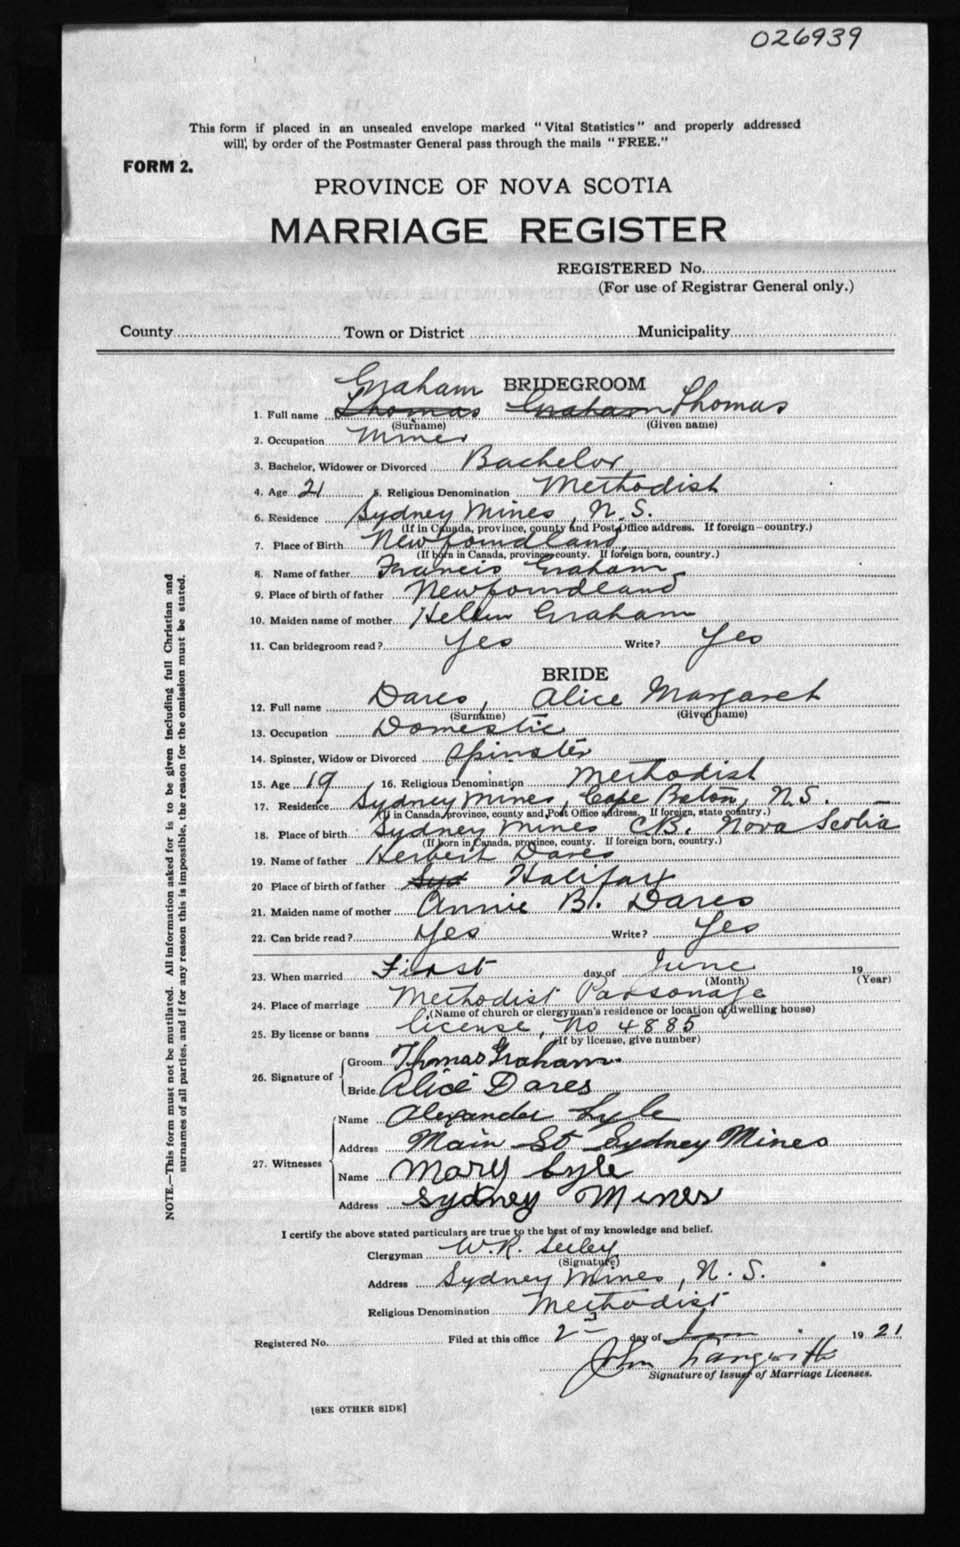 026939
This form if placed in an unsealed envelope marked "Vital Statistics" and properly addressed
will, by order of the Postmaster General pass through the mails "FREE."
FORM 2.
PROVINCE OF NOVA SCOTIA
MARRIAGE REGISTER
REGISTERED No.
(For use of Registrar General only.)
County Town or District Municipality
BRIDEGROOM
Graham
1. Full name Thomas Graham Thomas
(Surname) (Given name)
2. Occupation Miner
3. Bachelor, Widower or Divorced Bachelor
4. Age 21 5. Religious Denomination Methodist
6. Residence Sydney Mines, N.S.
(If in Canada, province, county and Post Office address. If foreign—country.)
7. Place of Birth Newfoundland
(If born in Canada, province county. If foreign born, country.)
8. Name of father Francis Graham
9. Place of birth of father Newfoundland
10. Maiden name of mother Helen Graham
11. Can bridegroom read? Yes Write? Yes
BRIDE
12. Full name Dares, Alice Margaret
(Surname) (Given name)
13. Occupation Domestic
14. Spinster, Widow or Divorced Spinster
15. Age 19 16. Religious Denomination Methodist
17. Residence Sydney Mines, Cape Breton, N.S.
(If in Canada, province, county and Post Office address. If foreign, state country.)
18. Place of birth Sydney Mines C.B. Nova Scotia
(If born in Canada, province, county. If foreign born, country.)
19. Name of father Herbert Dares
20 Place of birth of father Syd Halifax
21. Maiden name of mother Annie B. Dares
22. Can bride read? Yes Write? Yes
23. When married First day of June 19
(Month) (Year)
24. Place of marriage Methodist Parsonage
(Name of church or clergyman's residence or location of dwelling house)
25. By license or banns license, No 4885
(If by license, give number)
26. Signature of Groom Thomas Graham
Bride Alice Dares
27. Witnesses
Name Alexander Lyle
Address Main St Sydney Mines
Name Mary Lyle
Address Sydney Mines
I certify the above stated particulars are true to the best of my knowledge and belief.
Clergyman W.R. Seeley
(Signature)
Address Sydney Mines, N.S.
Religious Denomination Methodist
Registered No. Filed at this office 2nd day of 1921
John
Signature of Issuer of Marriage Licenses.
[SEE OTHER SIDE]
NOTE.—This form must not be mutilated. All information asked for is to be given including full Christian and
surnames of all parties, and if for any reason this is impossible, the reason for the omission must be stated.